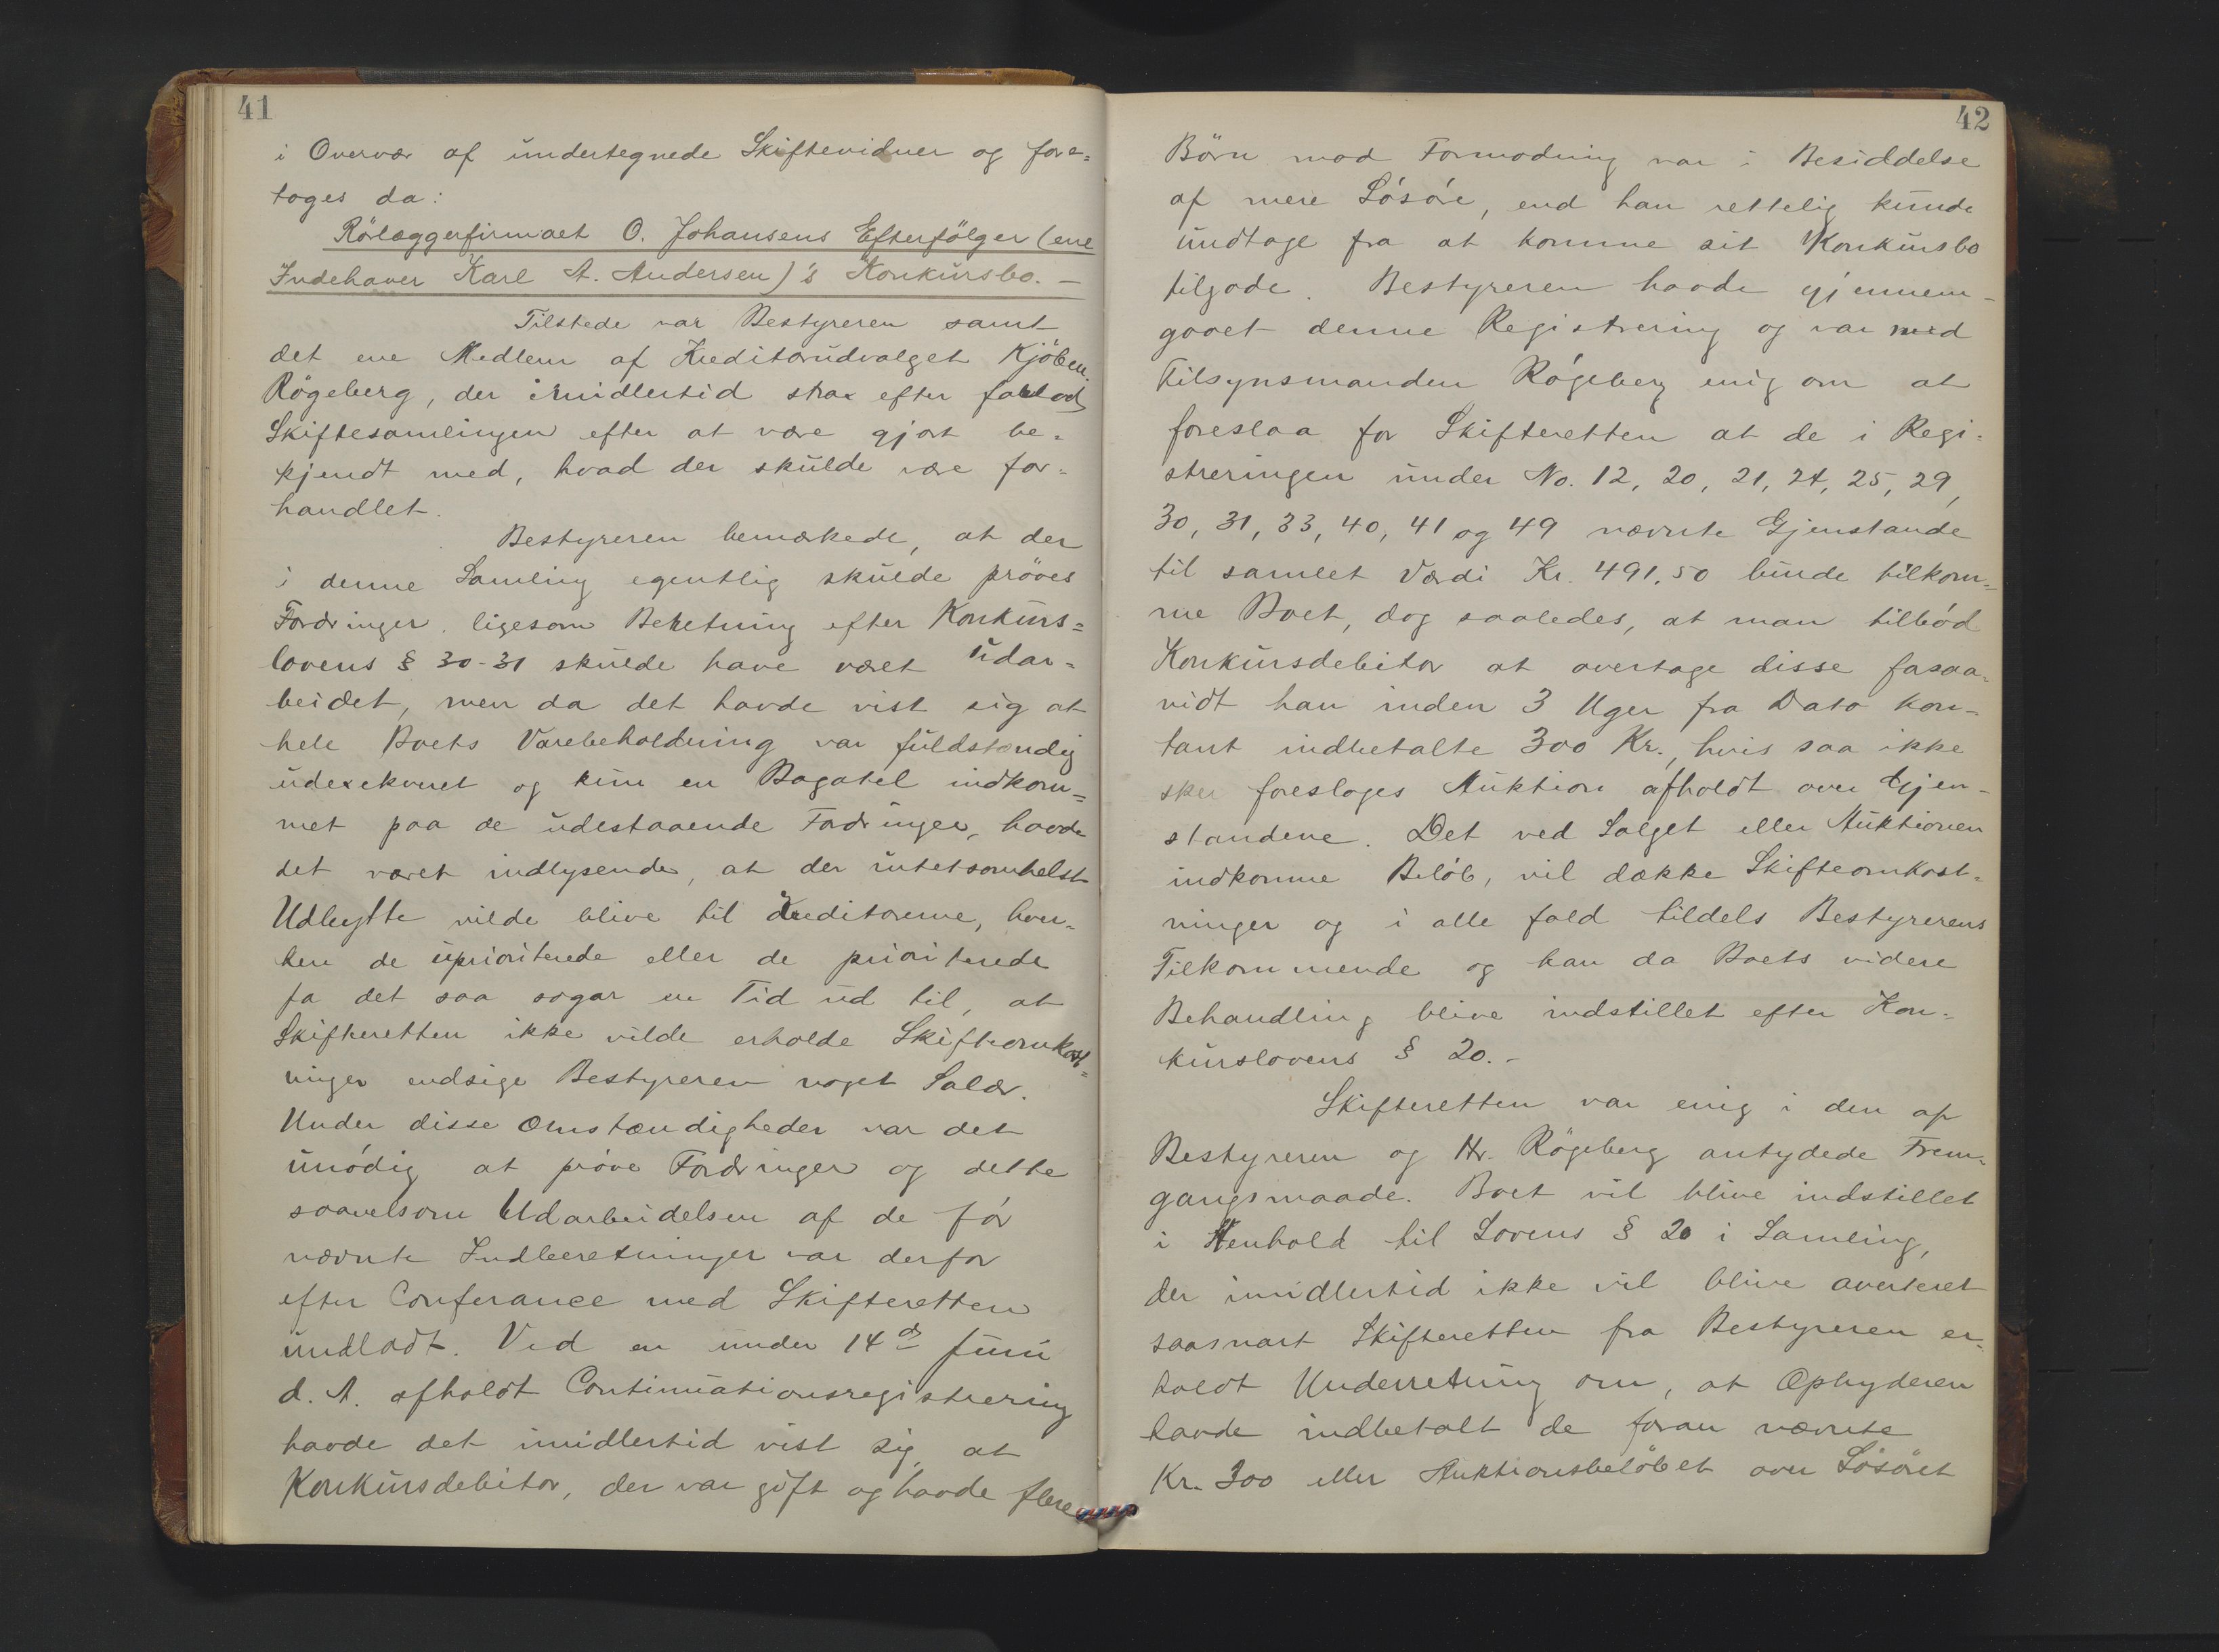 41
i Overvær af undertegnede Skiftevidner og fore=
toges da:
Rörlæggerfirmaet O. Johansens Efterfölger (ene
Indehaver Karl A. Andersen)'s Konkursbo. —
Tilstede var Bestyreren samt
det ene Medlem af Kreditorudvalget Kjöbm.
Rögeberg, der imidlertid strax efter forlod
Skiftesamlingen efter at være gjort be=
kjendt med, hvad der skulde være for=
handlet.
Bestyreren bemærkede, at der
i denne Samling egentlig skulde pröves
Fordringer, ligesom Beretning efter Konkurs=
lovens § 30-31 skulde have været udar=
beidet, men da det havde vist sig at
hele Boets Varebeholdning var fuldstændig
udexekveret og kun en Bagatel indkom=
met paa de udestaaende Fordringer, havde
det været indlysende, at der intetsomhelst
Udbytte vilde blive til Kreditorerne, hver=
ken de uprioriterede eller de prioriterede
ja det saa sogar en Tid ud til, at
Skifteretten ikke vilde erholde Skifteomkost=
ninger endsige Bestyreren noget Salær.
Under disse Omstændigheder var det
unödig at pröve Fordringer og dette
saavelsom Udarbeidelsen af de för
nævnte Indberetninger var derfor
efter Conferance med Skifteretten
undladt. Ved en under 14de Juni
d. A. afholdt Continuationsregistrering
havde det imidlertid vist sig, at
Konkursdebitor, der var gift og havde flere
42
Börn mod Formodning var i Besiddelse
af mere Lösöre, end han rettelig kunde
undtage fra at komme sit Konkursbo
tilgode. Bestyreren havde gjennem=
gaaet denne Registrering og var med
Tilsynsmanden Rögeberg enig om at
foreslaa for Skifteretten at de i Regi=
streringen under No. 12, 20, 21, 24, 25, 29,
30, 31, 33, 40, 41 og 49 nævnte Gjenstande
til samlet Værdi Kr. 491,50 burde tilkom=
me Boet, dog saaledes, at man tilböd
Konkursdebitor at overtage disse forsaa=
vidt han inden 3 Uger fra Dato kon=
tant indbetalte 300 Kr., hvis saa ikke
sker foreslages Auktion afholdt over Gjen=
standene. Det ved Salget eller Auktionen
indkomne Belöb, vil dække Skifteomkost=
ninger og i alle fald tildels Bestyrerens
Tilkommende og kan da Boets videre
Behandling blive indstillet efter Kon=
kurslovens § 20.-
Skifteretten var enig i den af
Bestyreren og Hr. Rögeberg antydede Frem=
gangsmaade. Boet vil blive indstillet
i Henhold til Lovens § 20 i Samling,
der imidlertid ikke vil blive averteret
saasnart Skifteretten fra Bestyreren er=
holdt Underretning om, at Opbyderen
havde indbetalt de foran nævnte
Kr. 300 eller Auktionsbelöbet over Lösöret